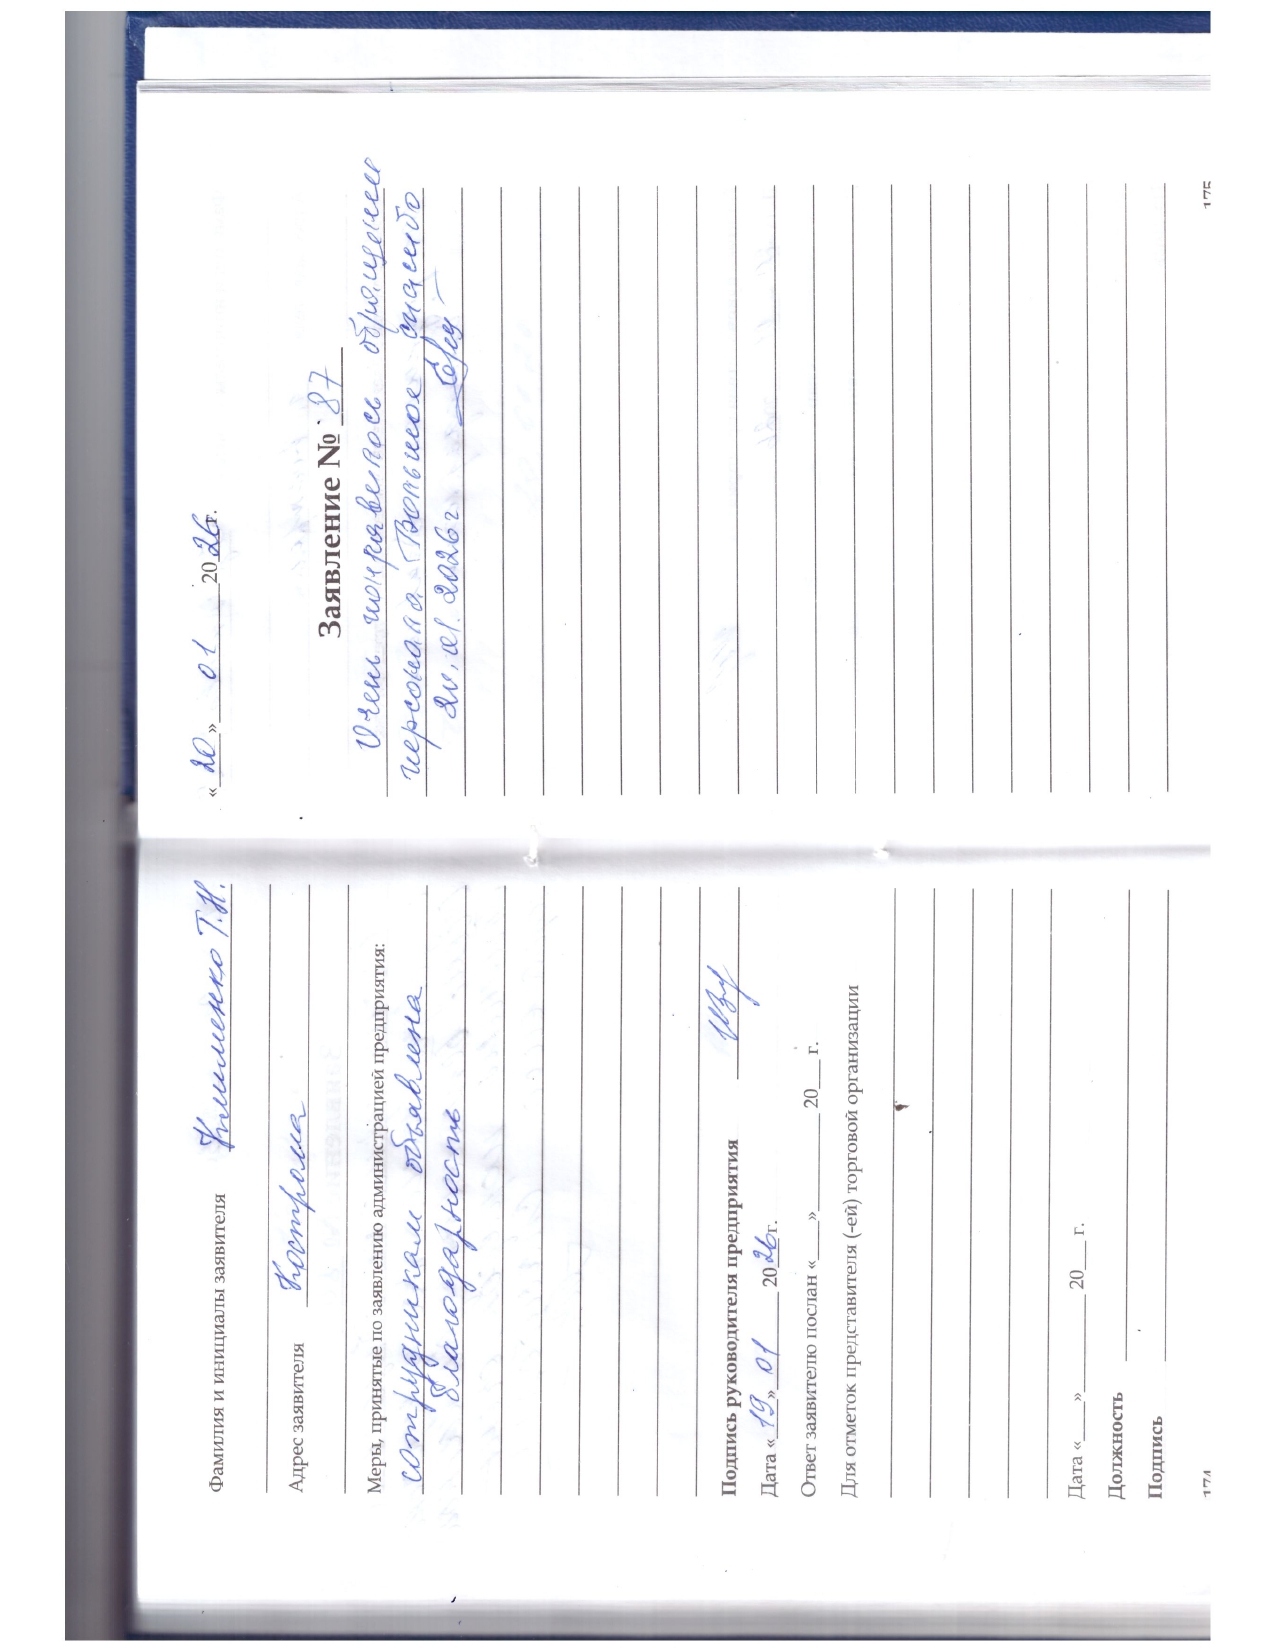 Фамилия и инициалы заявителя Клименко Т.Н.
Адрес заявителя Кострома
Меры, принятые по заявлению администрацией предприятия:
сотрудникам объявлена
благодарность
Подпись руководителя предприятия
Дата «19» 01 2026г.
Ответ заявителю послан «___»________ 20___ г.
Для отметок представителя (-ей) торговой организации
Дата «___»________ 20___ г.
Должность
Подпись
174
«20» 01 2026г.
Заявление № 87
Очень понравелось обращение
персонала Большое спасибо
20.01.2026г
175